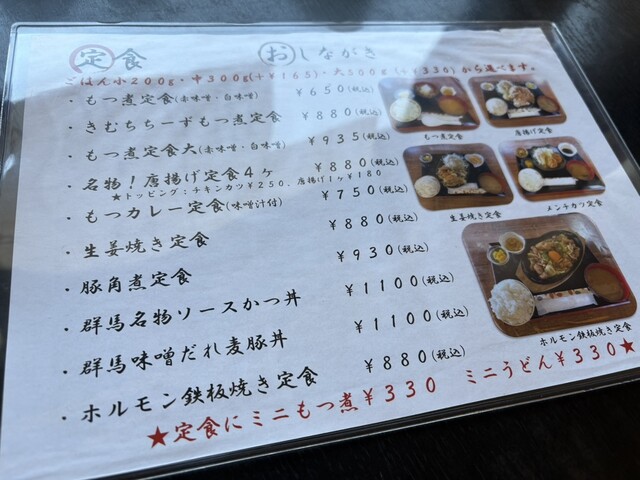 定食 おしながき
ごはん小200g・中300g(+¥165)・大500g(+¥330)から選べます。
・もつ煮定食(赤味噌・白味噌) ¥650(税込)
・きむちちーずもつ煮定食 ¥880(税込)
・もつ煮定食大(赤味噌・白味噌) ¥935(税込)
・名物！唐揚げ定食4ヶ ¥880(税込)
★トッピング：チキンカツ¥250、唐揚げ1ヶ¥180
・もつカレー定食(味噌汁付) ¥750(税込)
・生姜焼き定食 ¥880(税込)
・豚角煮定食 ¥930(税込)
・群馬名物ソースかつ丼 ¥1100(税込)
・群馬味噌だれ麦豚丼 ¥1100(税込)
・ホルモン鉄板焼き定食 ¥880(税込)
★定食にミニもつ煮¥330 ミニうどん¥330★
もつ煮定食
唐揚げ定食
生姜焼き定食
メンチカツ定食
ホルモン鉄板焼き定食